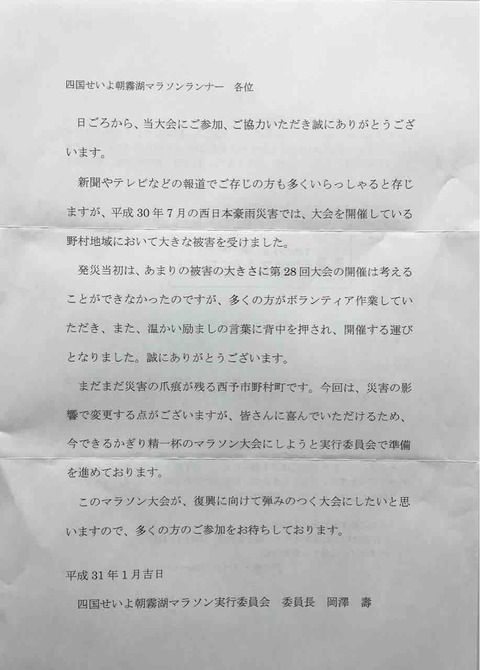 四国せいよ朝霧湖マラソンランナー　各位
日ごろから、当大会にご参加、ご協力いただき誠にありがとうござ
います。
新聞やテレビなどの報道でご存じの方も多くいらっしゃると存じ
ますが、平成30年7月の西日本豪雨災害では、大会を開催している
野村地域において大きな被害を受けました。
発災当初は、あまりの被害の大きさに第28回大会の開催は考える
ことができなかったのですが、多くの方がボランティア作業してい
ただき、また、温かい励ましの言葉に背中を押され、開催する運び
となりました。誠にありがとうございます。
まだまだ災害の爪痕が残る西予市野村町です。今回は、災害の影
響で変更する点がございますが、皆さんに喜んでいただけるため、
今できるかぎり精一杯のマラソン大会にしようと実行委員会で準備
を進めております。
このマラソン大会が、復興に向けて弾みのつく大会にしたいと思
いますので、多くの方のご参加をお待ちしております。
平成31年1月吉日
四国せいよ朝霧湖マラソン実行委員会　委員長　岡澤　壽